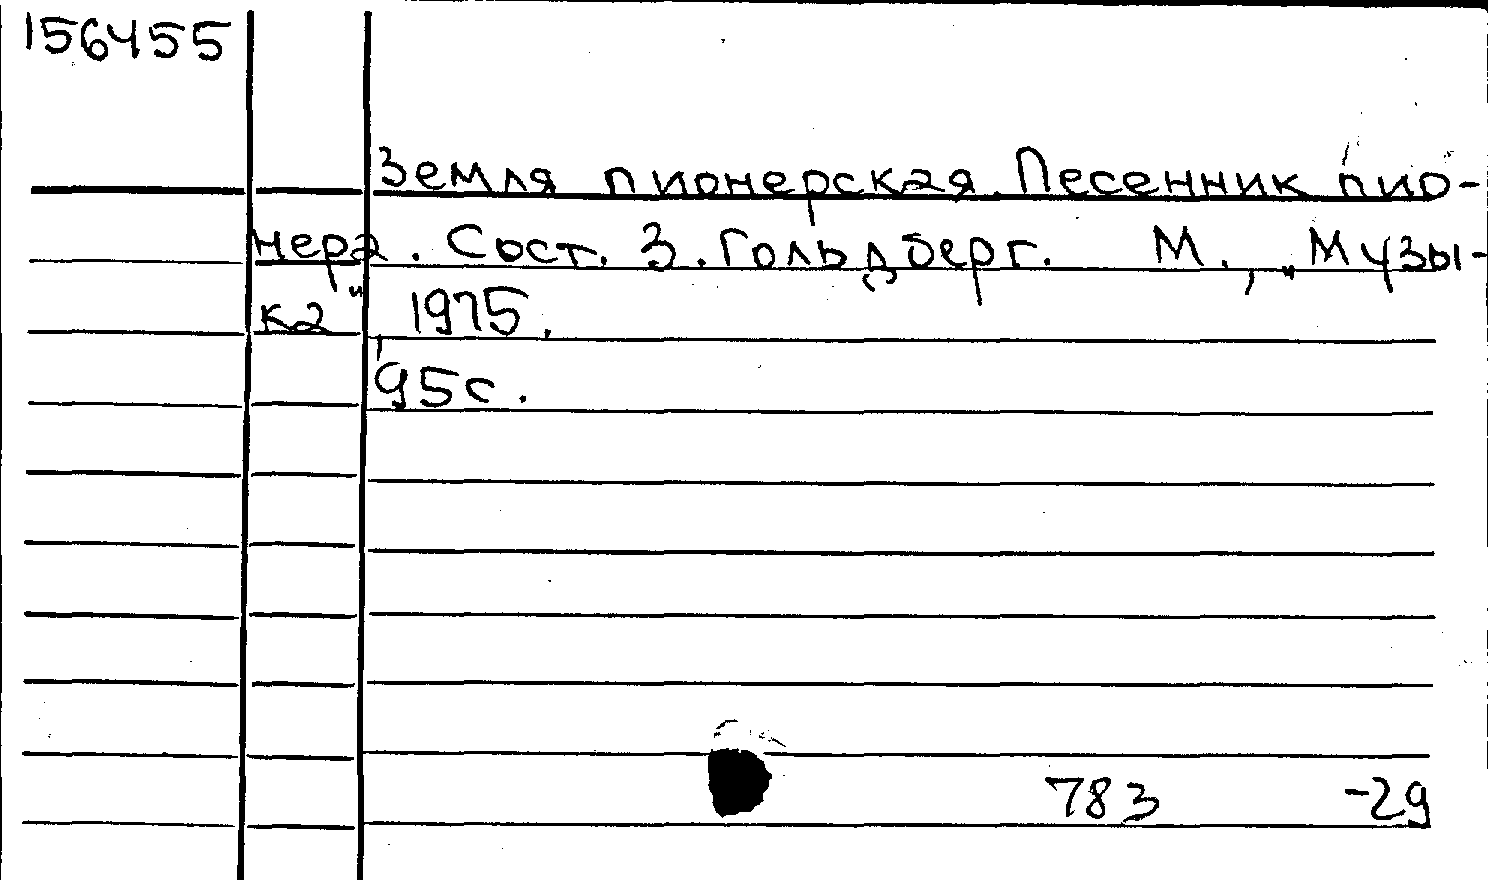 156455
Земля пионерская. Песенник пио-
нера. Сост. З. Гольдберг. М., „Музы-
ка", 1975.
95с.
783 -29